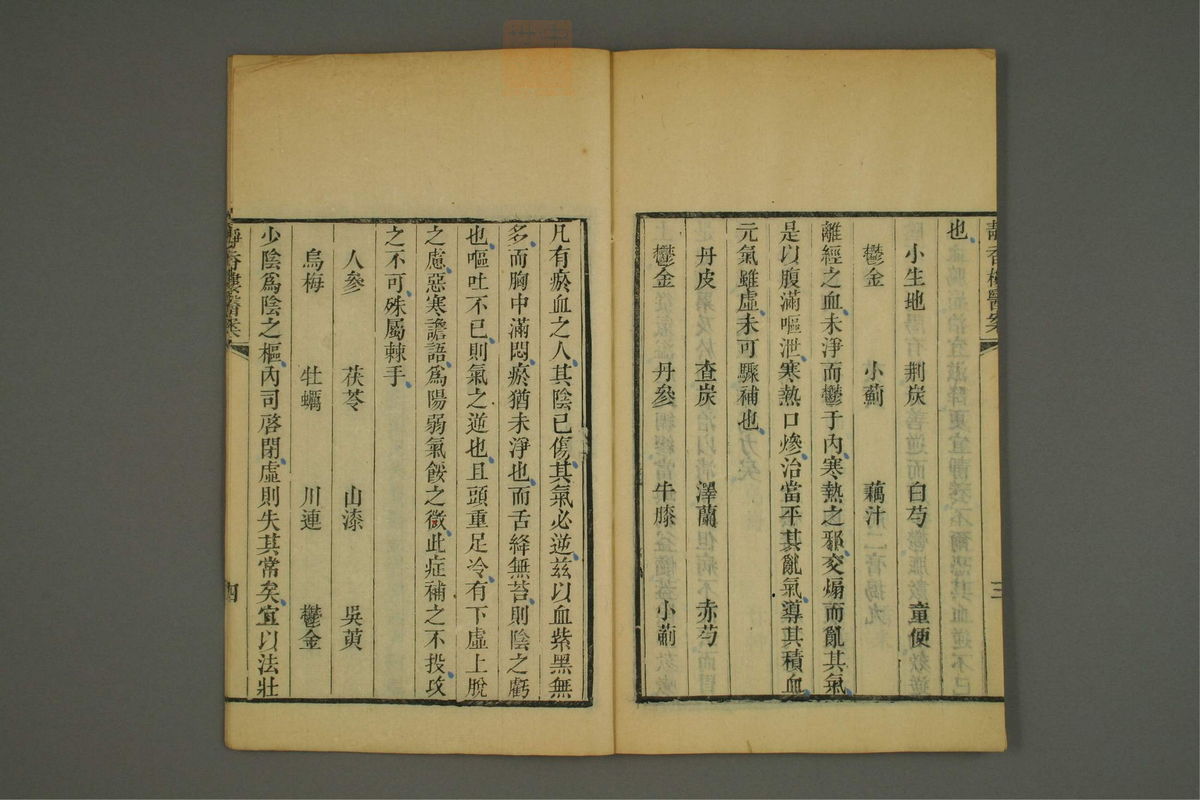 靜香樓醫案
三
也
小生地 荆炭 白芍 童便
鬱金 小薊 藕汁
離經之血未淨而鬱于内寒熱之邪交煽而亂其氣
是以腹滿嘔泄寒熱口燥治當平其亂氣導其積血
元氣雖虛未可驟補也
丹皮 查炭 澤蘭 赤芍
鬱金 丹參 牛膝 小薊
凡有瘀血之人其陰已傷其氣必逆兹以血紫黑無
多而胸中滿悶瘀猶未淨也而舌絳無苔則陰之虧
也嘔吐不已則氣之逆也且頭重足冷有下虛上脫
之慮惡寒譫語爲陽弱氣餒之徵此症補之不投攻
之不可殊屬棘手
人參 茯苓 山漆 吳萸
烏梅 牡蠣 川連 鬱金
少陰爲陰之樞内司啓閉虛則失其常矣宜以法壯
靜香樓醫案
四